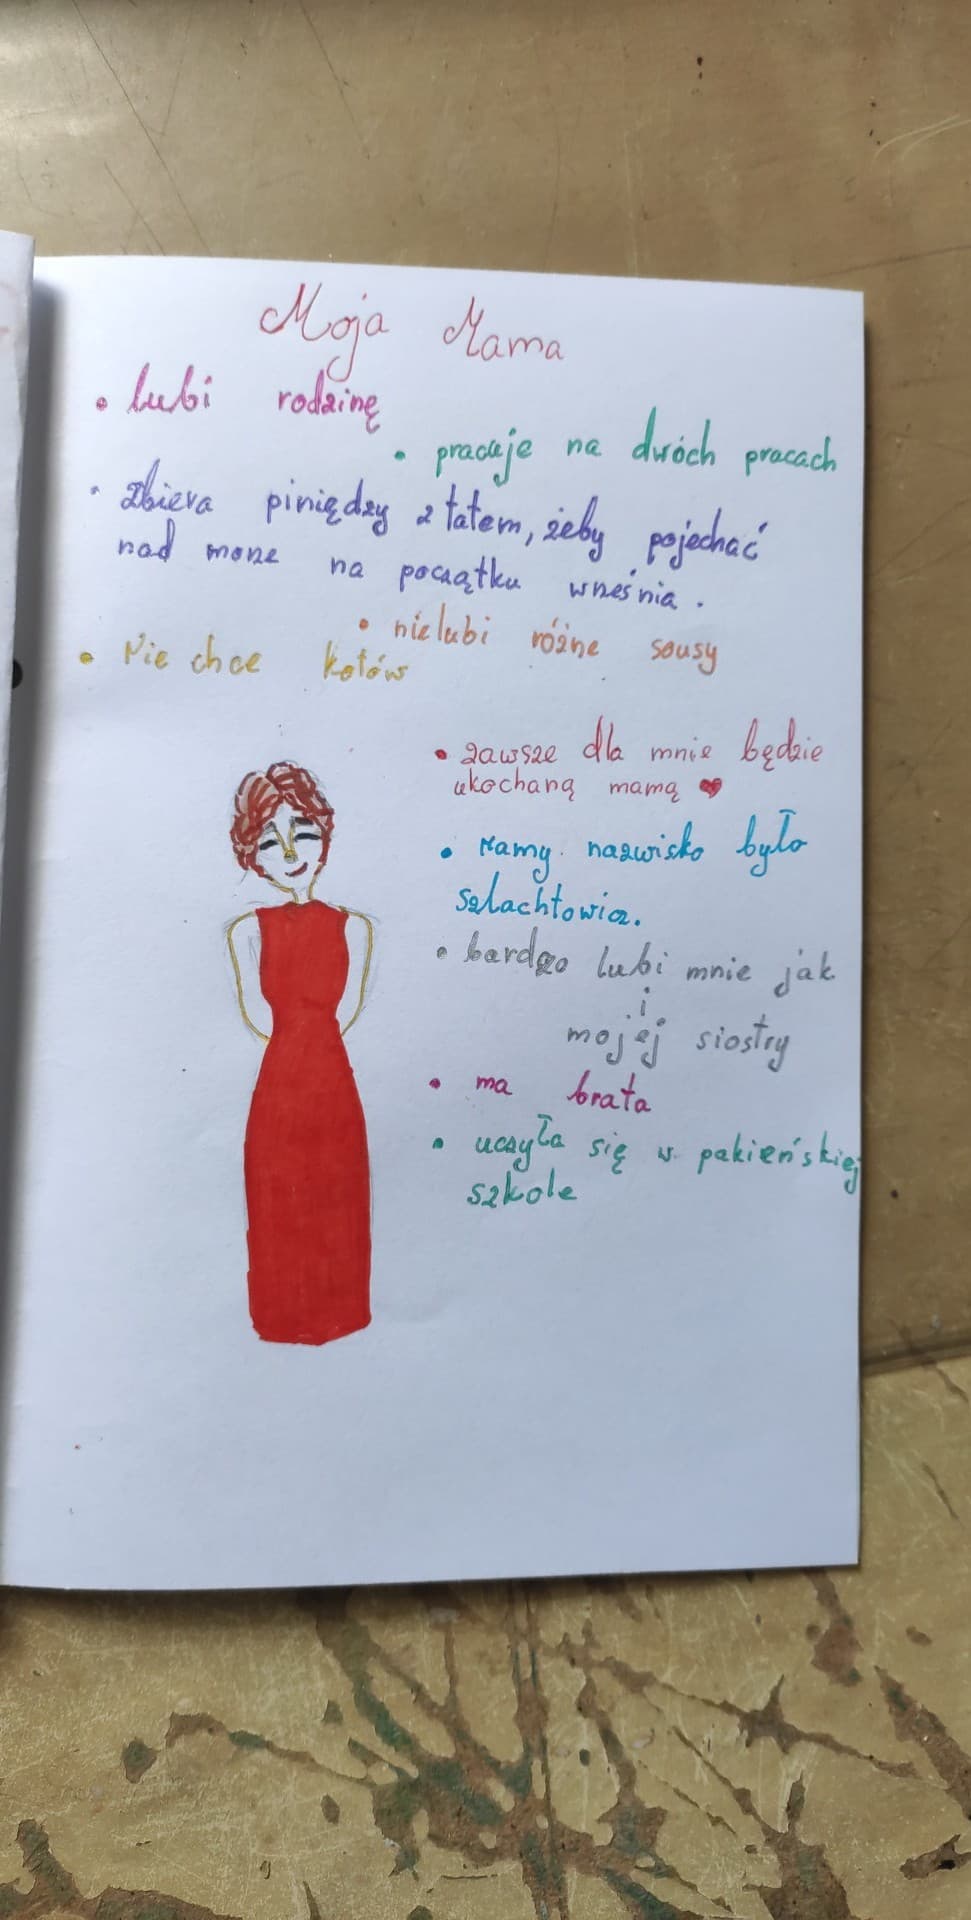 Moja Mama
• lubi rodzinę
• pracuje na dwóch pracach
• zbiera piniędzy z tatem, żeby pojechać
nad morze na początku września.
• nielubi różne sousy
• Nie chce kotów
• zawsze dla mnie będzie
ukochaną mamą ❤
• Mamy nazwisko było
Szlachtowicz.
• bardzo lubi mnie jak
i
mojej siostry
• ma brata
• uczyła się w pakieńskiej
szkole